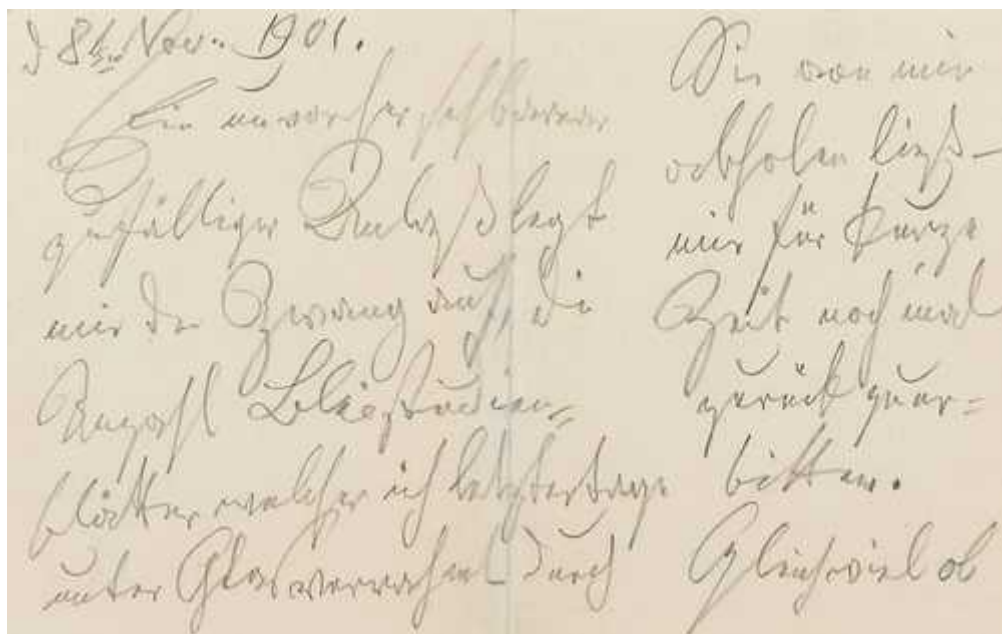 d 8ten Nov. 1901.
Ein unvorhersehbarer
zufälliger Anlaß legt
mir den Zwang auf, die
Anzahl
blätter welche ich letztertage
unter Glas verwahrt durch
Sie von mir
abholen ließ –
mir für kurze
Zeit noch mal
zurück zu er=
bitten.
Gleichviel ob